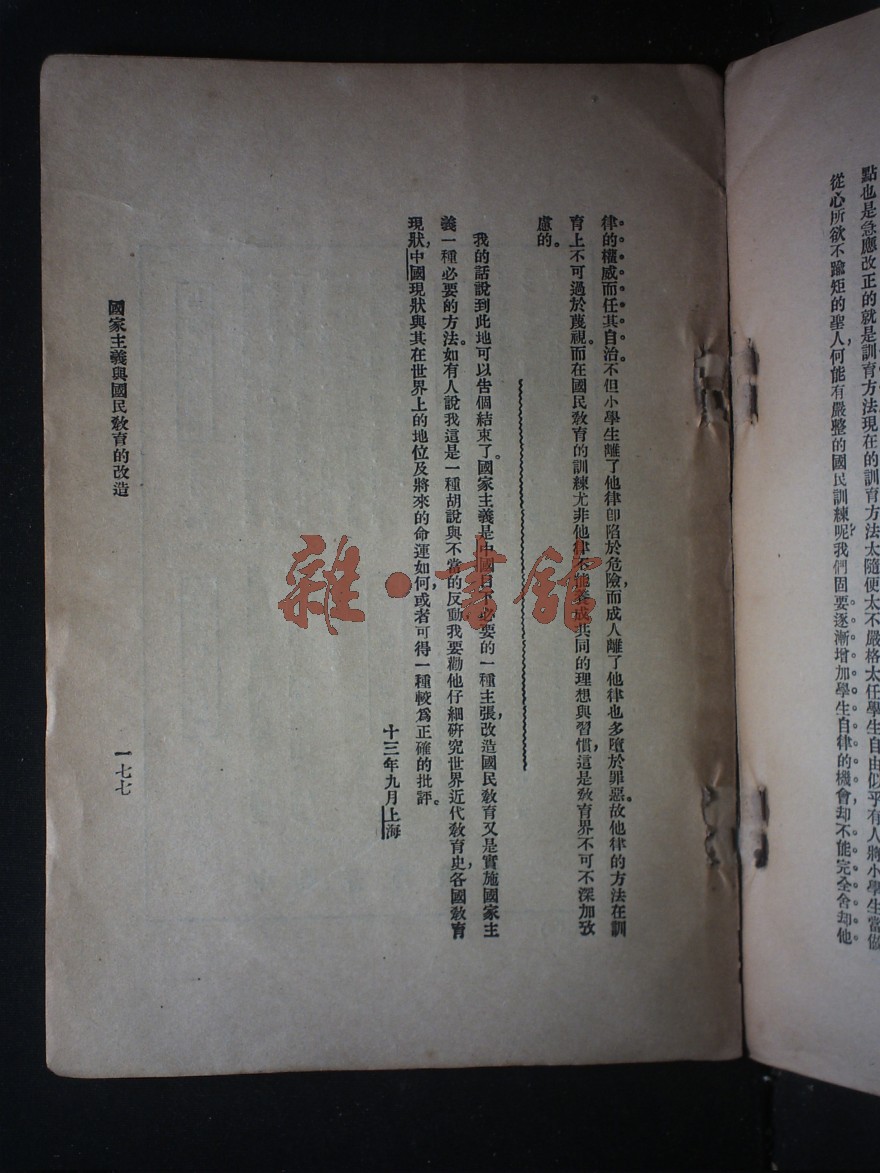 點也是急應改正的就是訓育方法現在的訓育方法太隨便太不嚴格太任學生自由似乎有人將小學生當做
從心所欲不踰矩的聖人，何能有嚴整的國民訓練呢？我們固要逐漸增加學生自律的機會，却不能完全舍却他
律的權威而任其自治。不但小學生離了他律卽陷於危險，而成人離了他律也多墮於罪惡。故他律的方法在訓
育上不可過於蔑視。而在國民教育的訓練尤非他律不能養成共同的理想與習慣，這是教育界不可不深加致
慮的。
我的話說到此地可以告個結束了。國家主義是中國目下必要的一種主張，改造國民教育又是實施國家主
義一種必要的方法。如有人說我這是一種胡說與不當的反動，我要勸他仔細研究世界近代教育史，各國教育
現狀，中國現狀與其在世界上的地位及將來的命運如何，或者可得一種較爲正確的批評。
十三年九月上海
國家主義與國民教育的改造
一七七
雜·書館